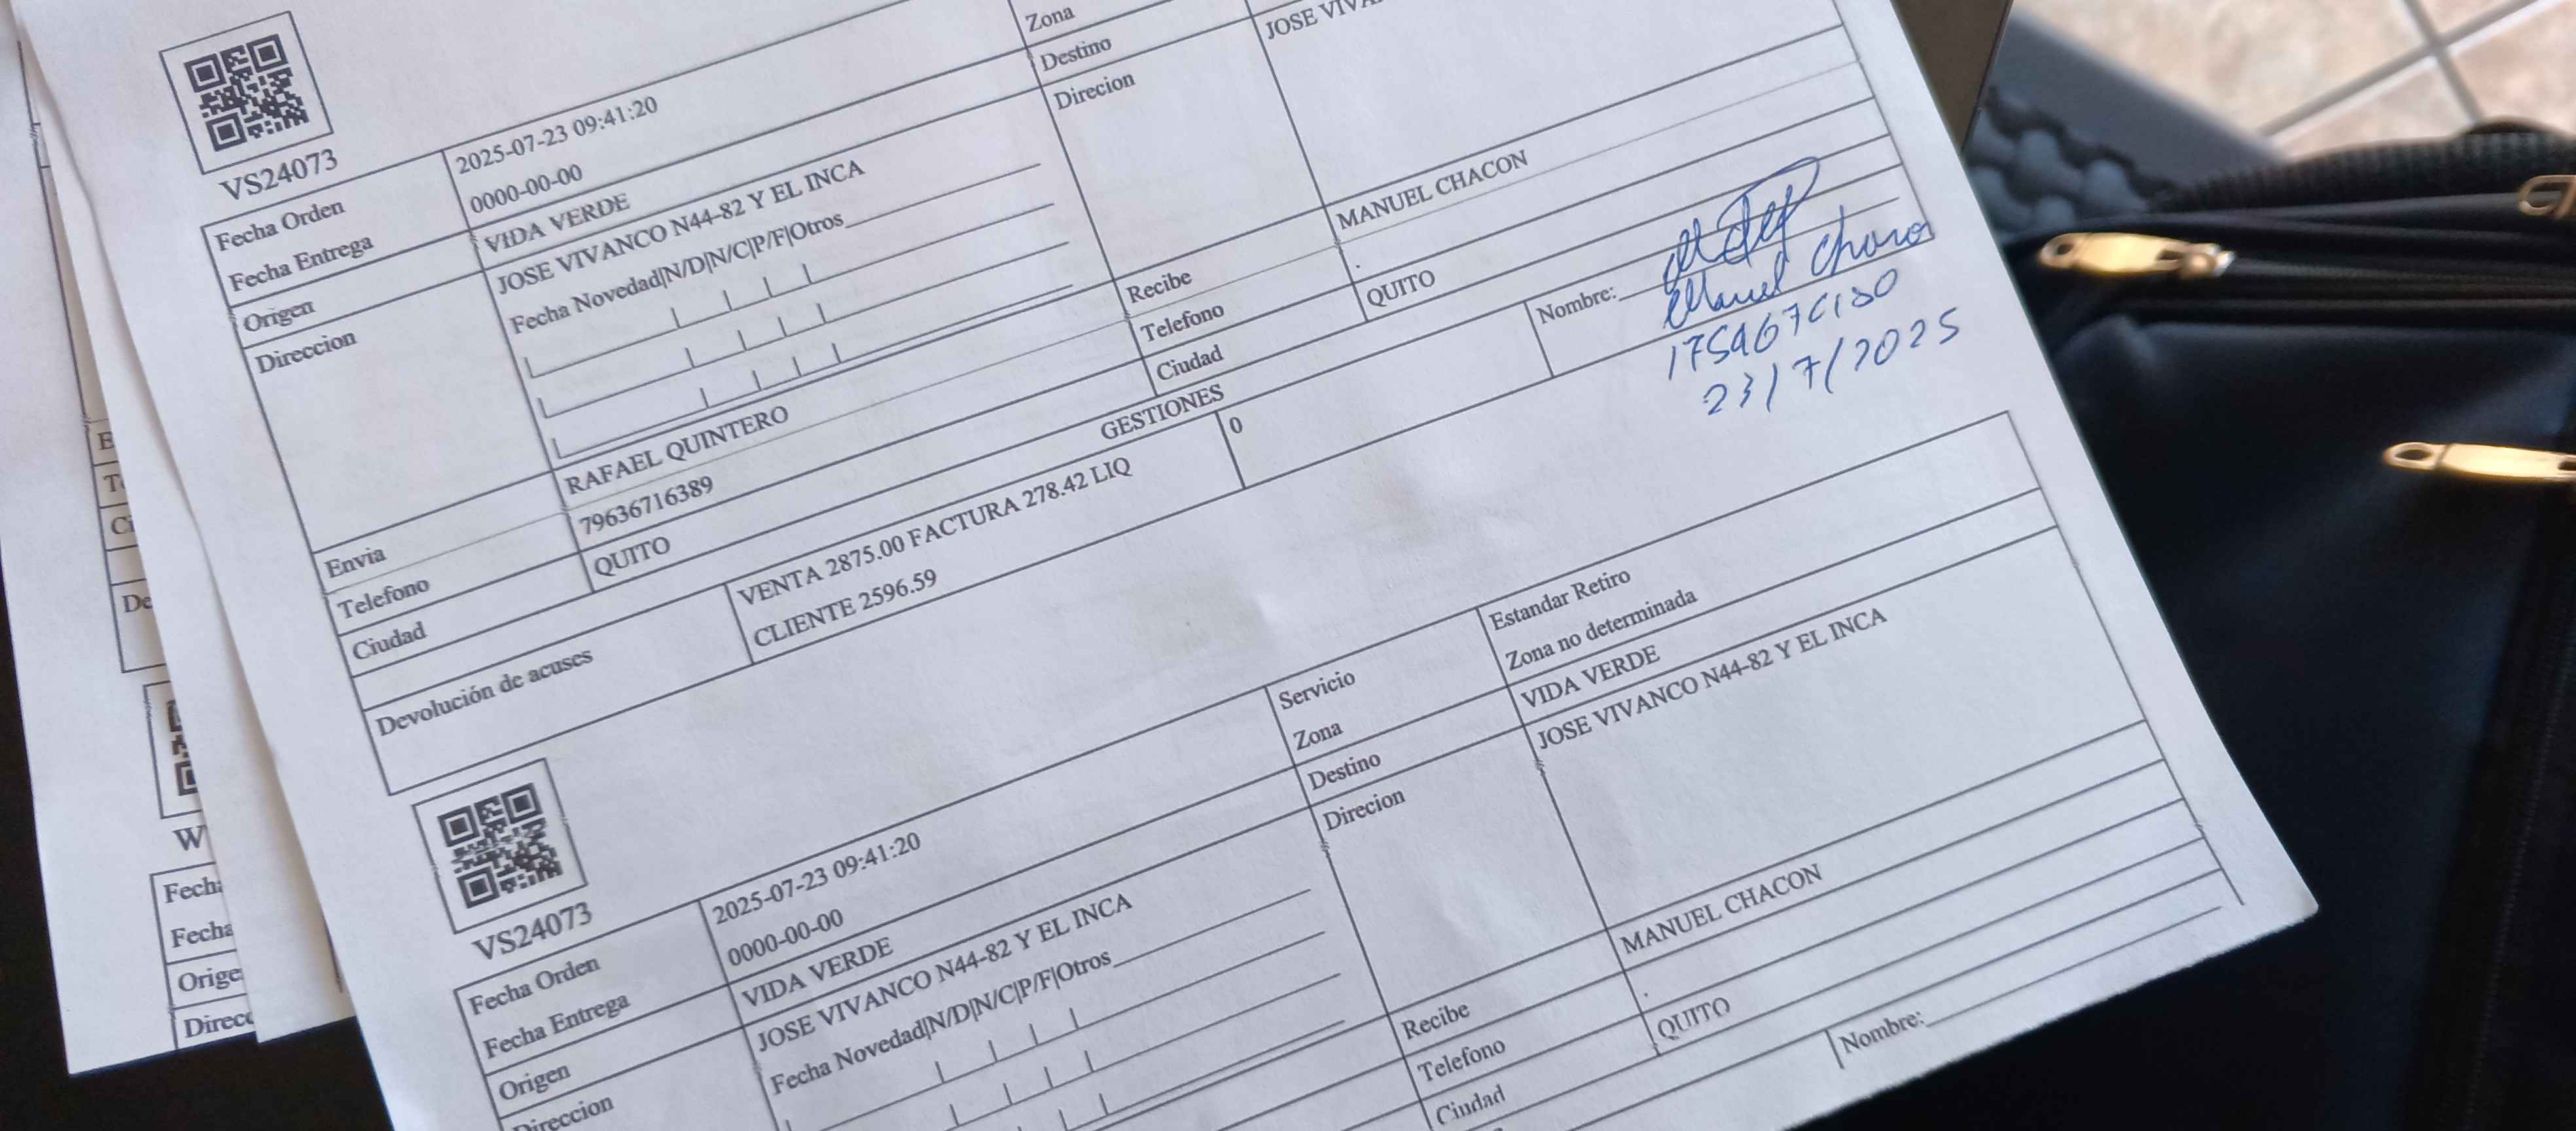 Zona
Destino
JOSE
Direcion
VS24073
Fecha Orden
2025-07-23 09:41:20
Fecha Entrega
0000-00-00
Origen
VIDA VERDE
Direccion
JOSE VIVANCO N44-82 Y EL INCA
Fecha Novedad|N/D|N/C|P/F|Otros
Recibe
MANUEL CHACON
Telefono
.
Ciudad
QUITO
Envia
RAFAEL QUINTERO
Telefono
79636716389
Ciudad
QUITO
GESTIONES
Devolución de acuses
VENTA 2875.00 FACTURA 278.42 LIQ
CLIENTE 2596.59
0
Nombre:
Manuel
23/7/2025
Servicio
Estandar Retiro
Zona
Zona no determinada
Destino
VIDA VERDE
Direcion
JOSE VIVANCO N44-82 Y EL INCA
VS24073
Fecha Orden
2025-07-23 09:41:20
Fecha Entrega
0000-00-00
Origen
VIDA VERDE
Direccion
JOSE VIVANCO N44-82 Y EL INCA
Fecha Novedad|N/D|N/C|P/F|Otros
Recibe
MANUEL CHACON
Telefono
.
Ciudad
QUITO
Nombre: